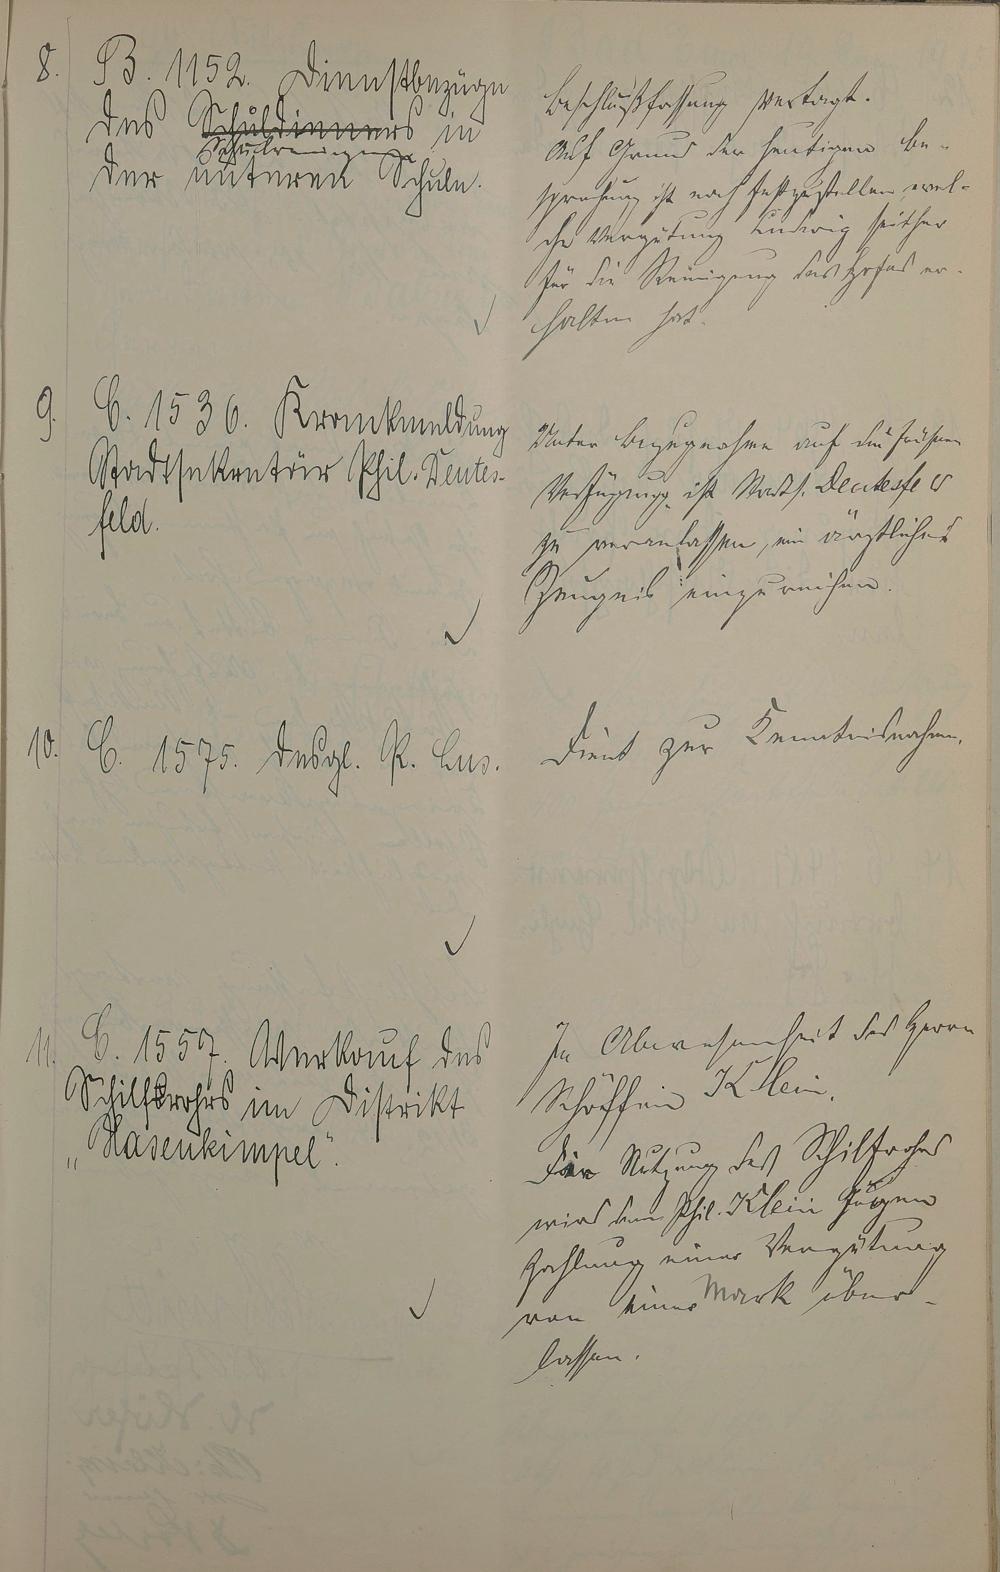 8. B. 1152. Dienstbezüge
des Schuldieners in
Schulreinigers
der unteren Schule.
Beschlußfassung vertagt.
Auf Grund der heutigen Be-
sprechung ist noch festzustellen, wel-
che Vergütung Ludwig seither
für die Reinigung des Hofes er-
halten hat.
9. C. 1536. Krankmeldung
Stadtsekretär Phil. Deutes-
feld.
Unter Bezugnahme auf die frühere
Verfügung ist Stadts. Deutesfeld
zu veranlassen, ein ärztliches
Zeugnis einzureichen.
10. C. 1575. Desgl. R. Lus.
Dient zur Kenntnisnahme.
11. C. 1557. Verkauf des
Schilfrohrs im Distrikt
„Hasenkimpel".
In Abwesenheit des Herrn
Schöffen Klein.
Die Nutzung des Schilfrohrs
wird dem Phil. Klein gegen
Zahlung einer Vergütung
von einer Mark über-
lassen.